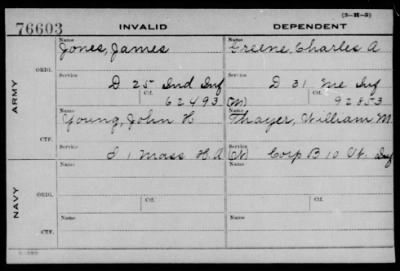 (3-H-3)
76603 INVALID DEPENDENT
Name Name
Jones, James Greene, Charles A
ARMY
ORIG.
Service Service
D 25 Ind Inf D 31 Me Inf
Ctf. Ctf.
62493 (M) 92853
Name Name
Young, John H Thayer, William M
CTF.
Service Service
I 1 Mass H.A (W) Corp B 10 Vt. Inf
NAVY
Name Name
ORIG.
Service Ctf. Service Ctf.
Name Name
CTF.
Service Service